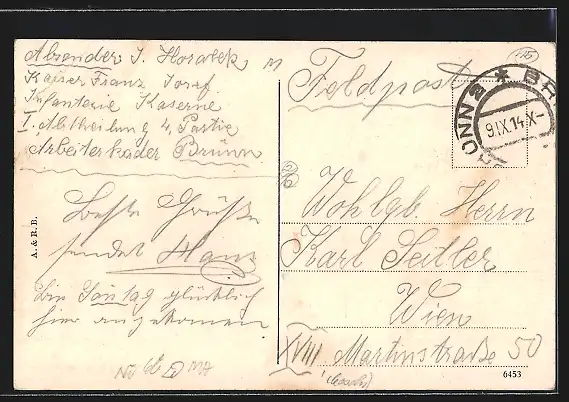 Absender J. Horalek
Kaiser Franz Josef
Infanterie Kaserne
I. Abtheilung 4. Partie
Arbeiterkader Brünn
Beste Grüße
sendet Hans
Bin Sontag glücklich
hier angekommen
A. & R. B.
Feldpost
BRÜNN 2 * BR
9.IX.14.X-
Wohlgb. Herrn
Karl Seitler
Wien
XVIII Martinstraße 50
6453